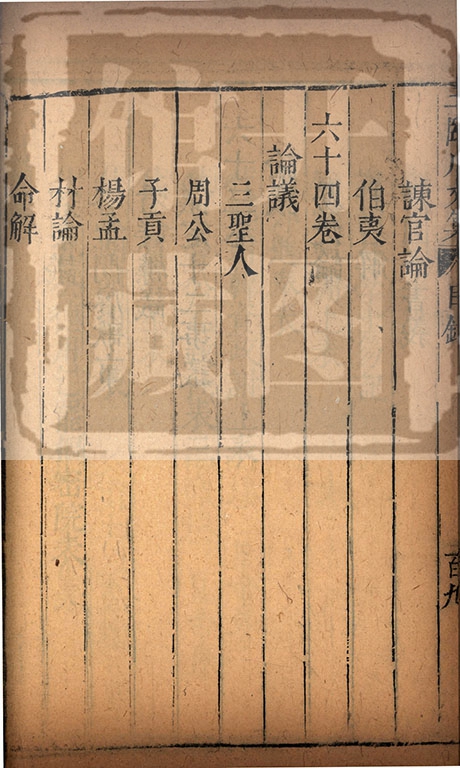 目錄
百九
諫官論
伯夷
六十四卷
論議
三聖人
周公
子貢
楊孟
材論
命解